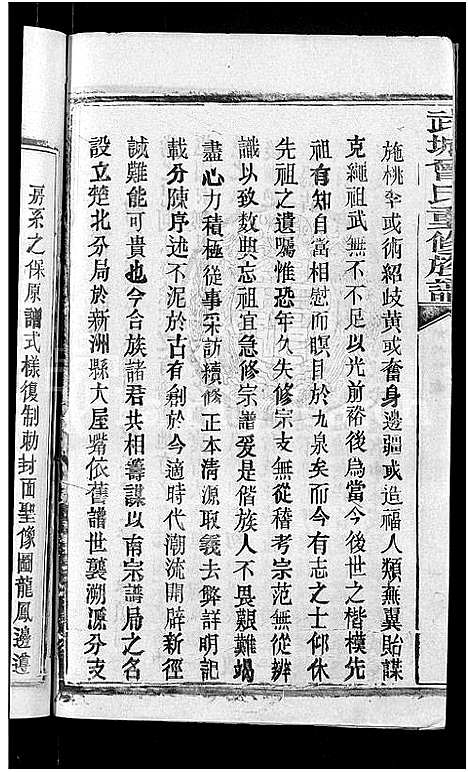 武城曾氏重修族譜
施桃李或術紹歧黄或奮身邊疆或造福人類無異貽謀
克繩祖武無不可以光前裕後為當今後世之楷模先
祖有知自當相慰而瞑目於九泉矣而今有志之士仰休
先祖之遺囑惟恐年久失修宗支無從稽考宗范無從辨
識以致数典忘祖宜急修宗譜爰是偕族人不畏艱難竭
盡心力積極從事采訪續修正本清源取義去弊詳明記
載分陳序述不泥於古有利於今適時代潮流開辟新徑
誠難能可貴也今合族諸君共相籌謀以南宗譜局之名
設立楚北分局於新洲縣大屋塆依舊譜世襲溯源分支
房系之保原譜式樣復制勅封面聖像圖龍鳳邊遵